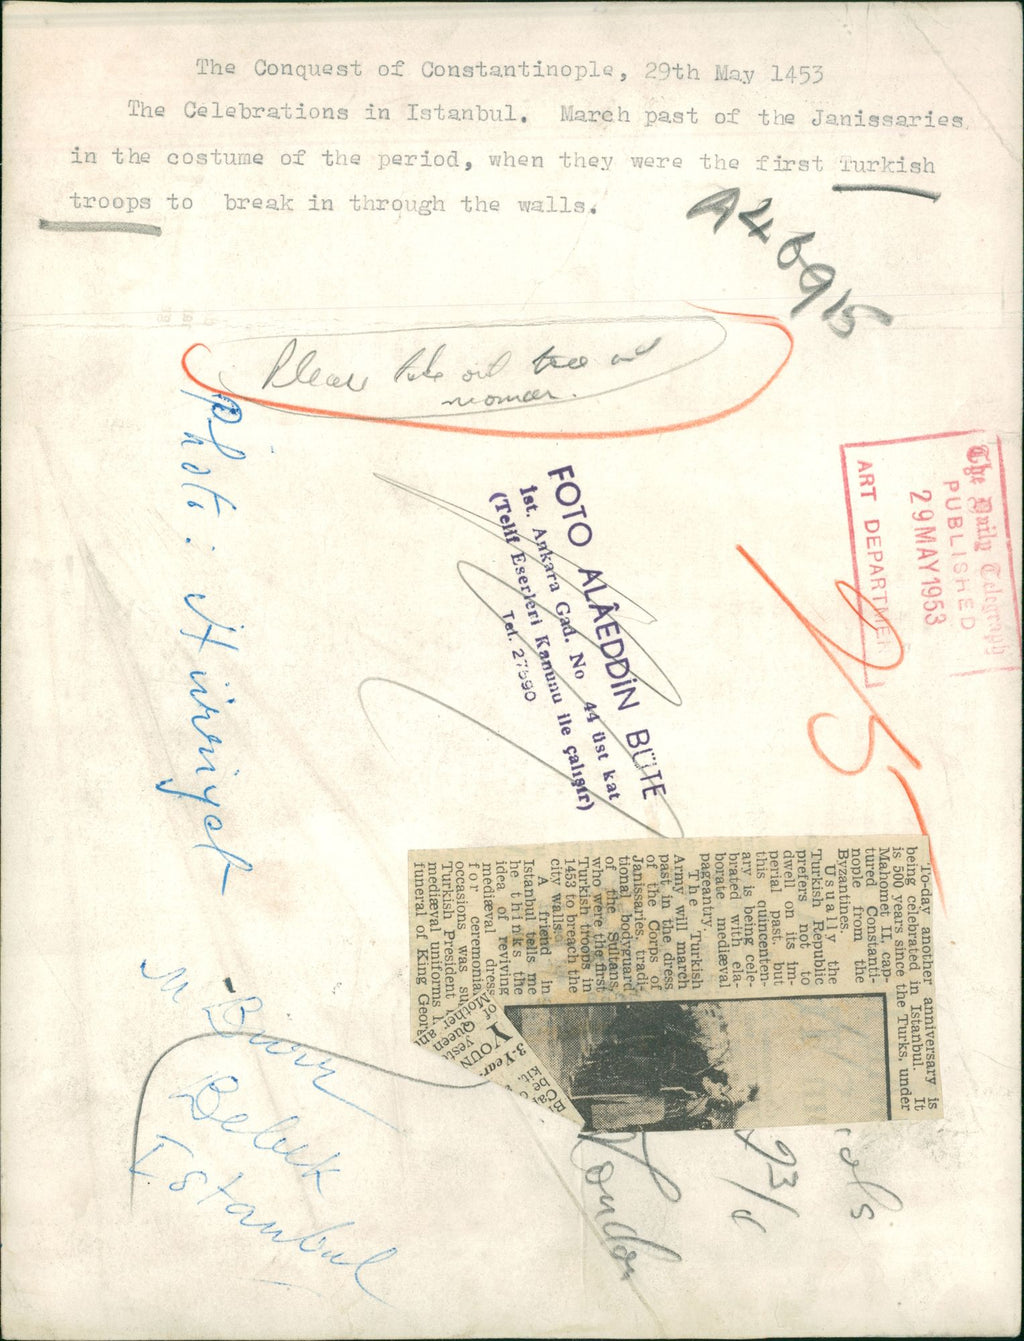 The Conquest of Constantinople, 29th May 1453
The Celebrations in Istanbul. March past of the Janissaries
in the costume of the period, when they were the first Turkish
troops to break in through the walls.
A46915
Please take out tree and
woman.
The Daily Telegraph
PUBLISHED
29 MAY 1953
ART DEPARTMEN
FOTO ALÂEDDİN BÜTE
İst. Ankara Cad. No 44 üst kat
(Telif Eserleri Kanunu ile çalışır)
Tel. 27590
Photo: Hürriyet
To-day another anniversary is
being celebrated in Istanbul. It
is 500 years since the Turks, under
Mahomet II, cap-
tured Constanti-
nople from the
Byzantines.
Usually the
Turkish Republic
prefers not to
dwell on its im-
perial past, but
this quincenten-
ary is being cele-
brated with ela-
borate mediæval
pageantry.
The Turkish
Army will march
past in the dress
of the Corps of
Janissaries, tradi-
tional bodyguard
of the Sultans,
who were the first
Turkish troops in
1453 to breach the
city walls.
A friend in
Istanbul tells me
he thinks the
idea of reviving
mediæval dress
for ceremonial
occasions was su
Turkish President
mediæval uniforms
funeral of King Georg
of
Mother
Queen
yeste
YOUN
3-Year
kit,
be
Ca
M. Burr
Bebek
Istanbul
London
493/6
ols